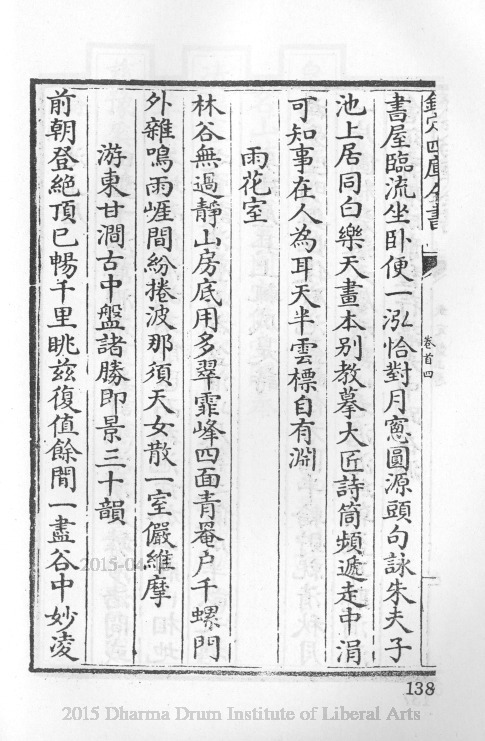 欽定四庫全書
卷首四
書屋臨流坐卧便一泓恰對月窻圓源頭句詠朱夫子
池上居同白樂天畫本别教摹大匠詩筒頻遞走中涓
可知事在人為耳天半雲標自有淵
雨花室
林谷無過靜山房底用多翠霏峰四面青罨户千螺門
外雜鳴雨崕間紛捲波那須天女散一室儼維摩
游東甘澗古中盤諸勝即景三十韻
前朝登絶頂已暢千里眺兹復值餘閒一盡谷中妙凌
138
2015 Dharma Drum Institute of Liberal Arts